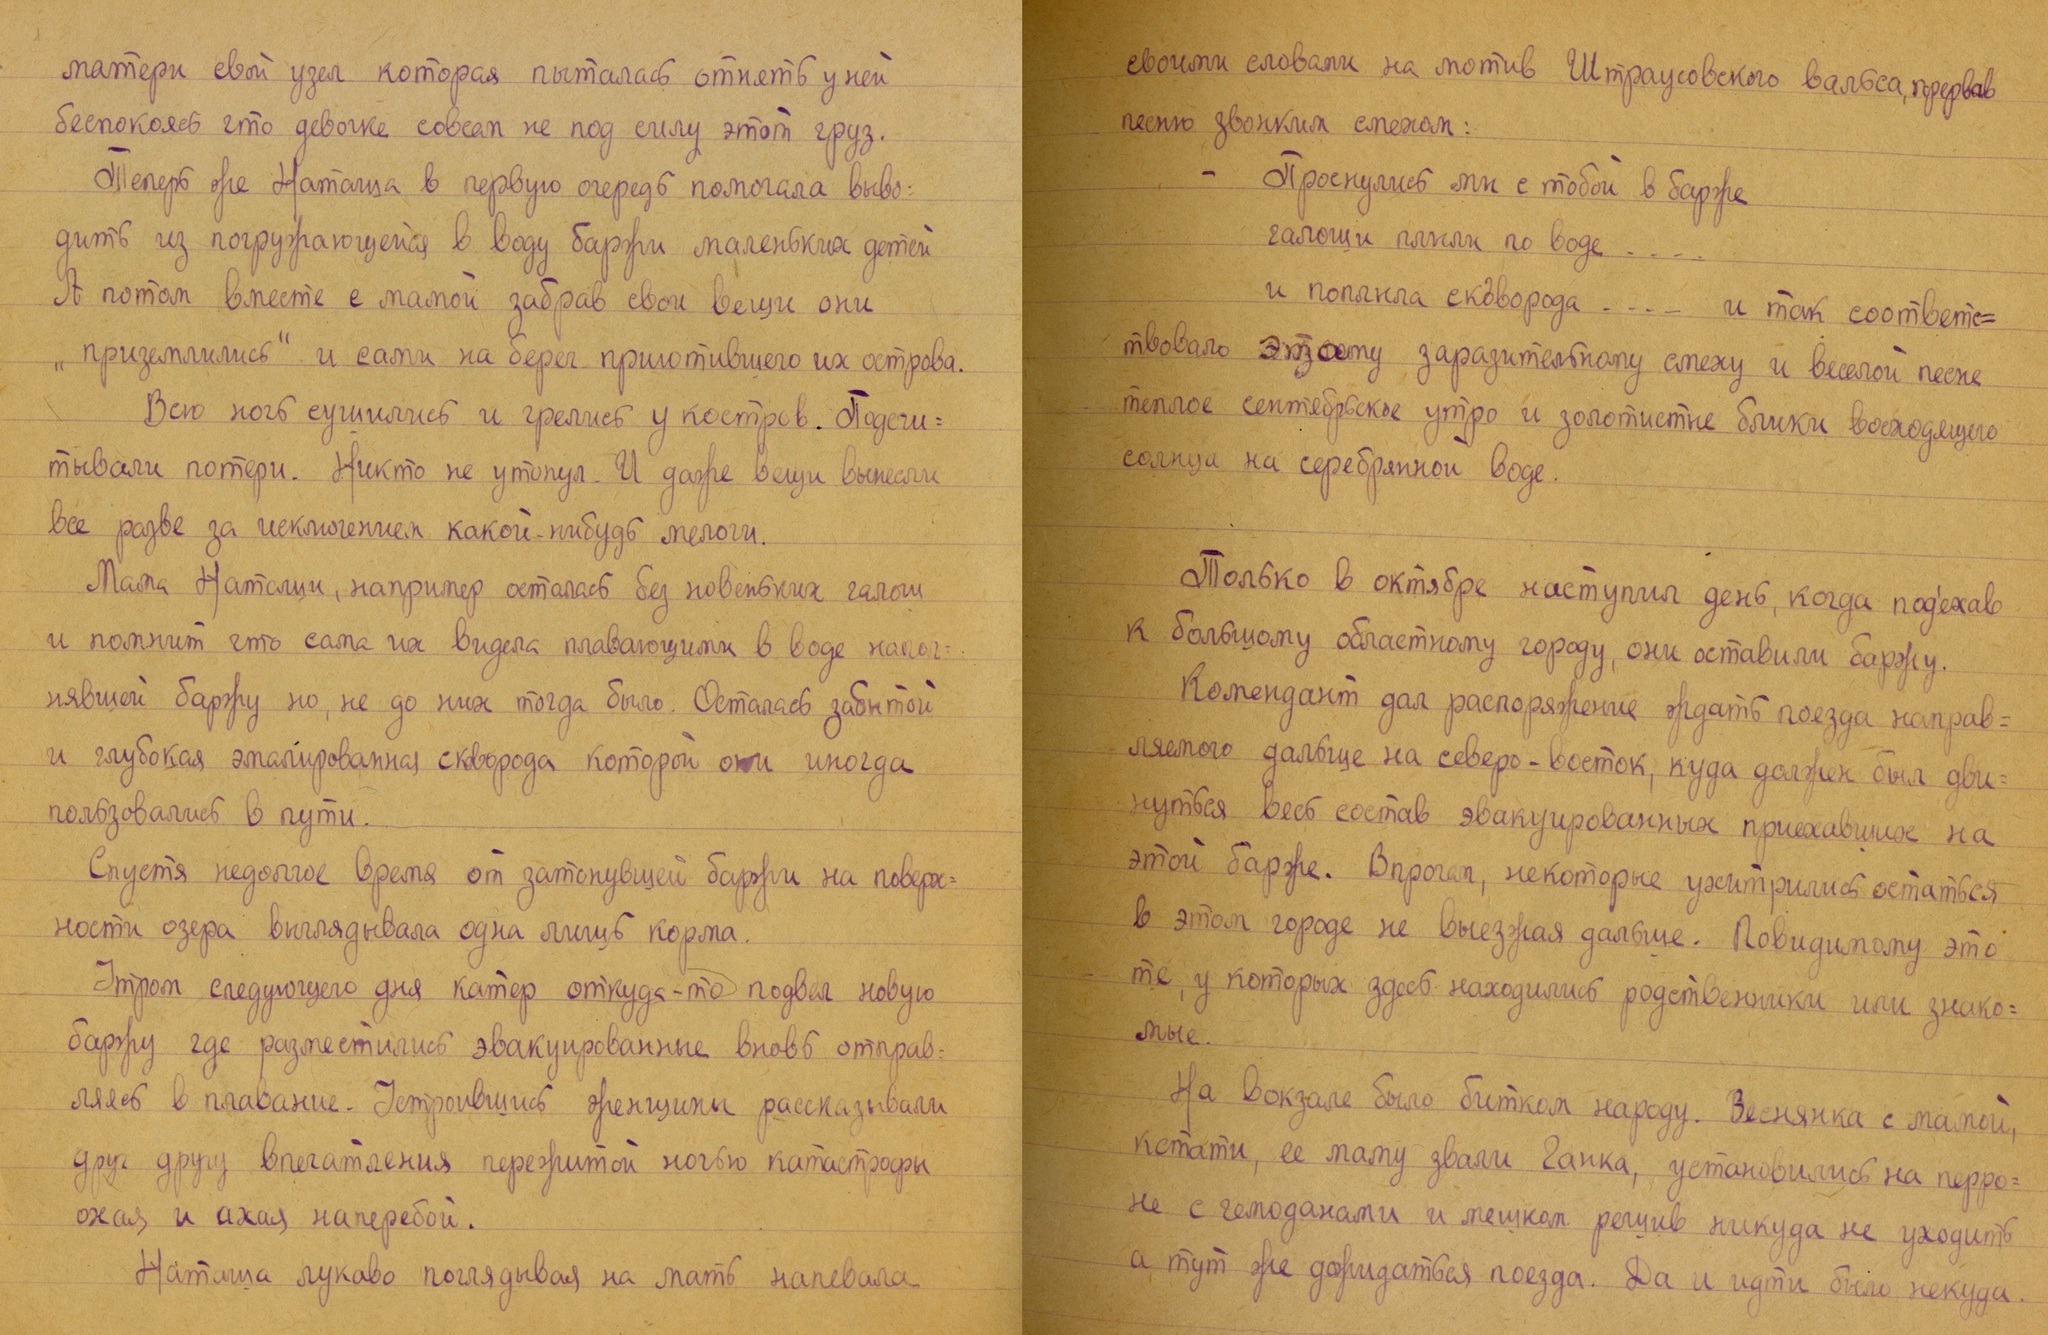 матери свой узел которая пыталась отнять у ней
беспокоясь что девочке совсем не под силу этот груз.
Теперь же Наталца в первую очередь помогала выво=
дить из погружающейся в воду баржи маленьких детей
А потом вместе с мамой забрав свои вещи они
„приземлились" и сами на берег приютившего их острова.
Всю ночь сушились и грелись у костров. Подсчи=
тывали потери. Никто не утонул. И даже вещи вынесли
все разве за исключением какой-нибудь мелочи.
Мама Наталци, например осталась без новеньких галош
и помнит что сама их видела плавающими в воде напол=
нявшей баржу но, не до них тогда было. Осталась забытой
и глубокая эмалированная сковорода которой они иногда
пользовались в пути.
Спустя недолгое время от затонувшей баржи на поверх=
ности озера выглядывала одна лишь корма.
Утром следующего дня катер откуда-то подвел новую
баржу где разместились эвакуированные вновь отправ=
ляясь в плавание. Устроившись женщины рассказывали
друг другу впечатления пережитой ночью катастрофы
охая и ахая наперебой.
Наталца лукаво поглядывая на мать напевала
своими словами на мотив Штраусовского вальса, прервав
песню звонким смехом:
- Проснулись мы с тобой в барже
галощи плыли по воде ....
и поплыла сковорода .... и так соответс=
твовало этому заразительному смеху и веселой песне
теплое сентябрьское утро и золотистые блики восходящего
солнца на серебрянной воде.
Только в октябре наступил день, когда под'ехав
к большому областному городу, они оставили баржу.
Комендант дал распоряжение ждать поезда направ=
ляемого дальше на северо-восток, куда должен был дви=
нуться весь состав эвакуированных приехавших на
этой барже. Впрочем, некоторые ухитрились остаться
в этом городе не выезжая дальше. Повидимому это
те, у которых здесь находились родственники или знако=
мые.
На вокзале было битком народу. Веснянка с мамой,
кстати, ее маму звали Ганка, установились на перро=
не с чемоданами и мешком решив никуда не уходить
а тут же дожидаться поезда. Да и идти было некуда.